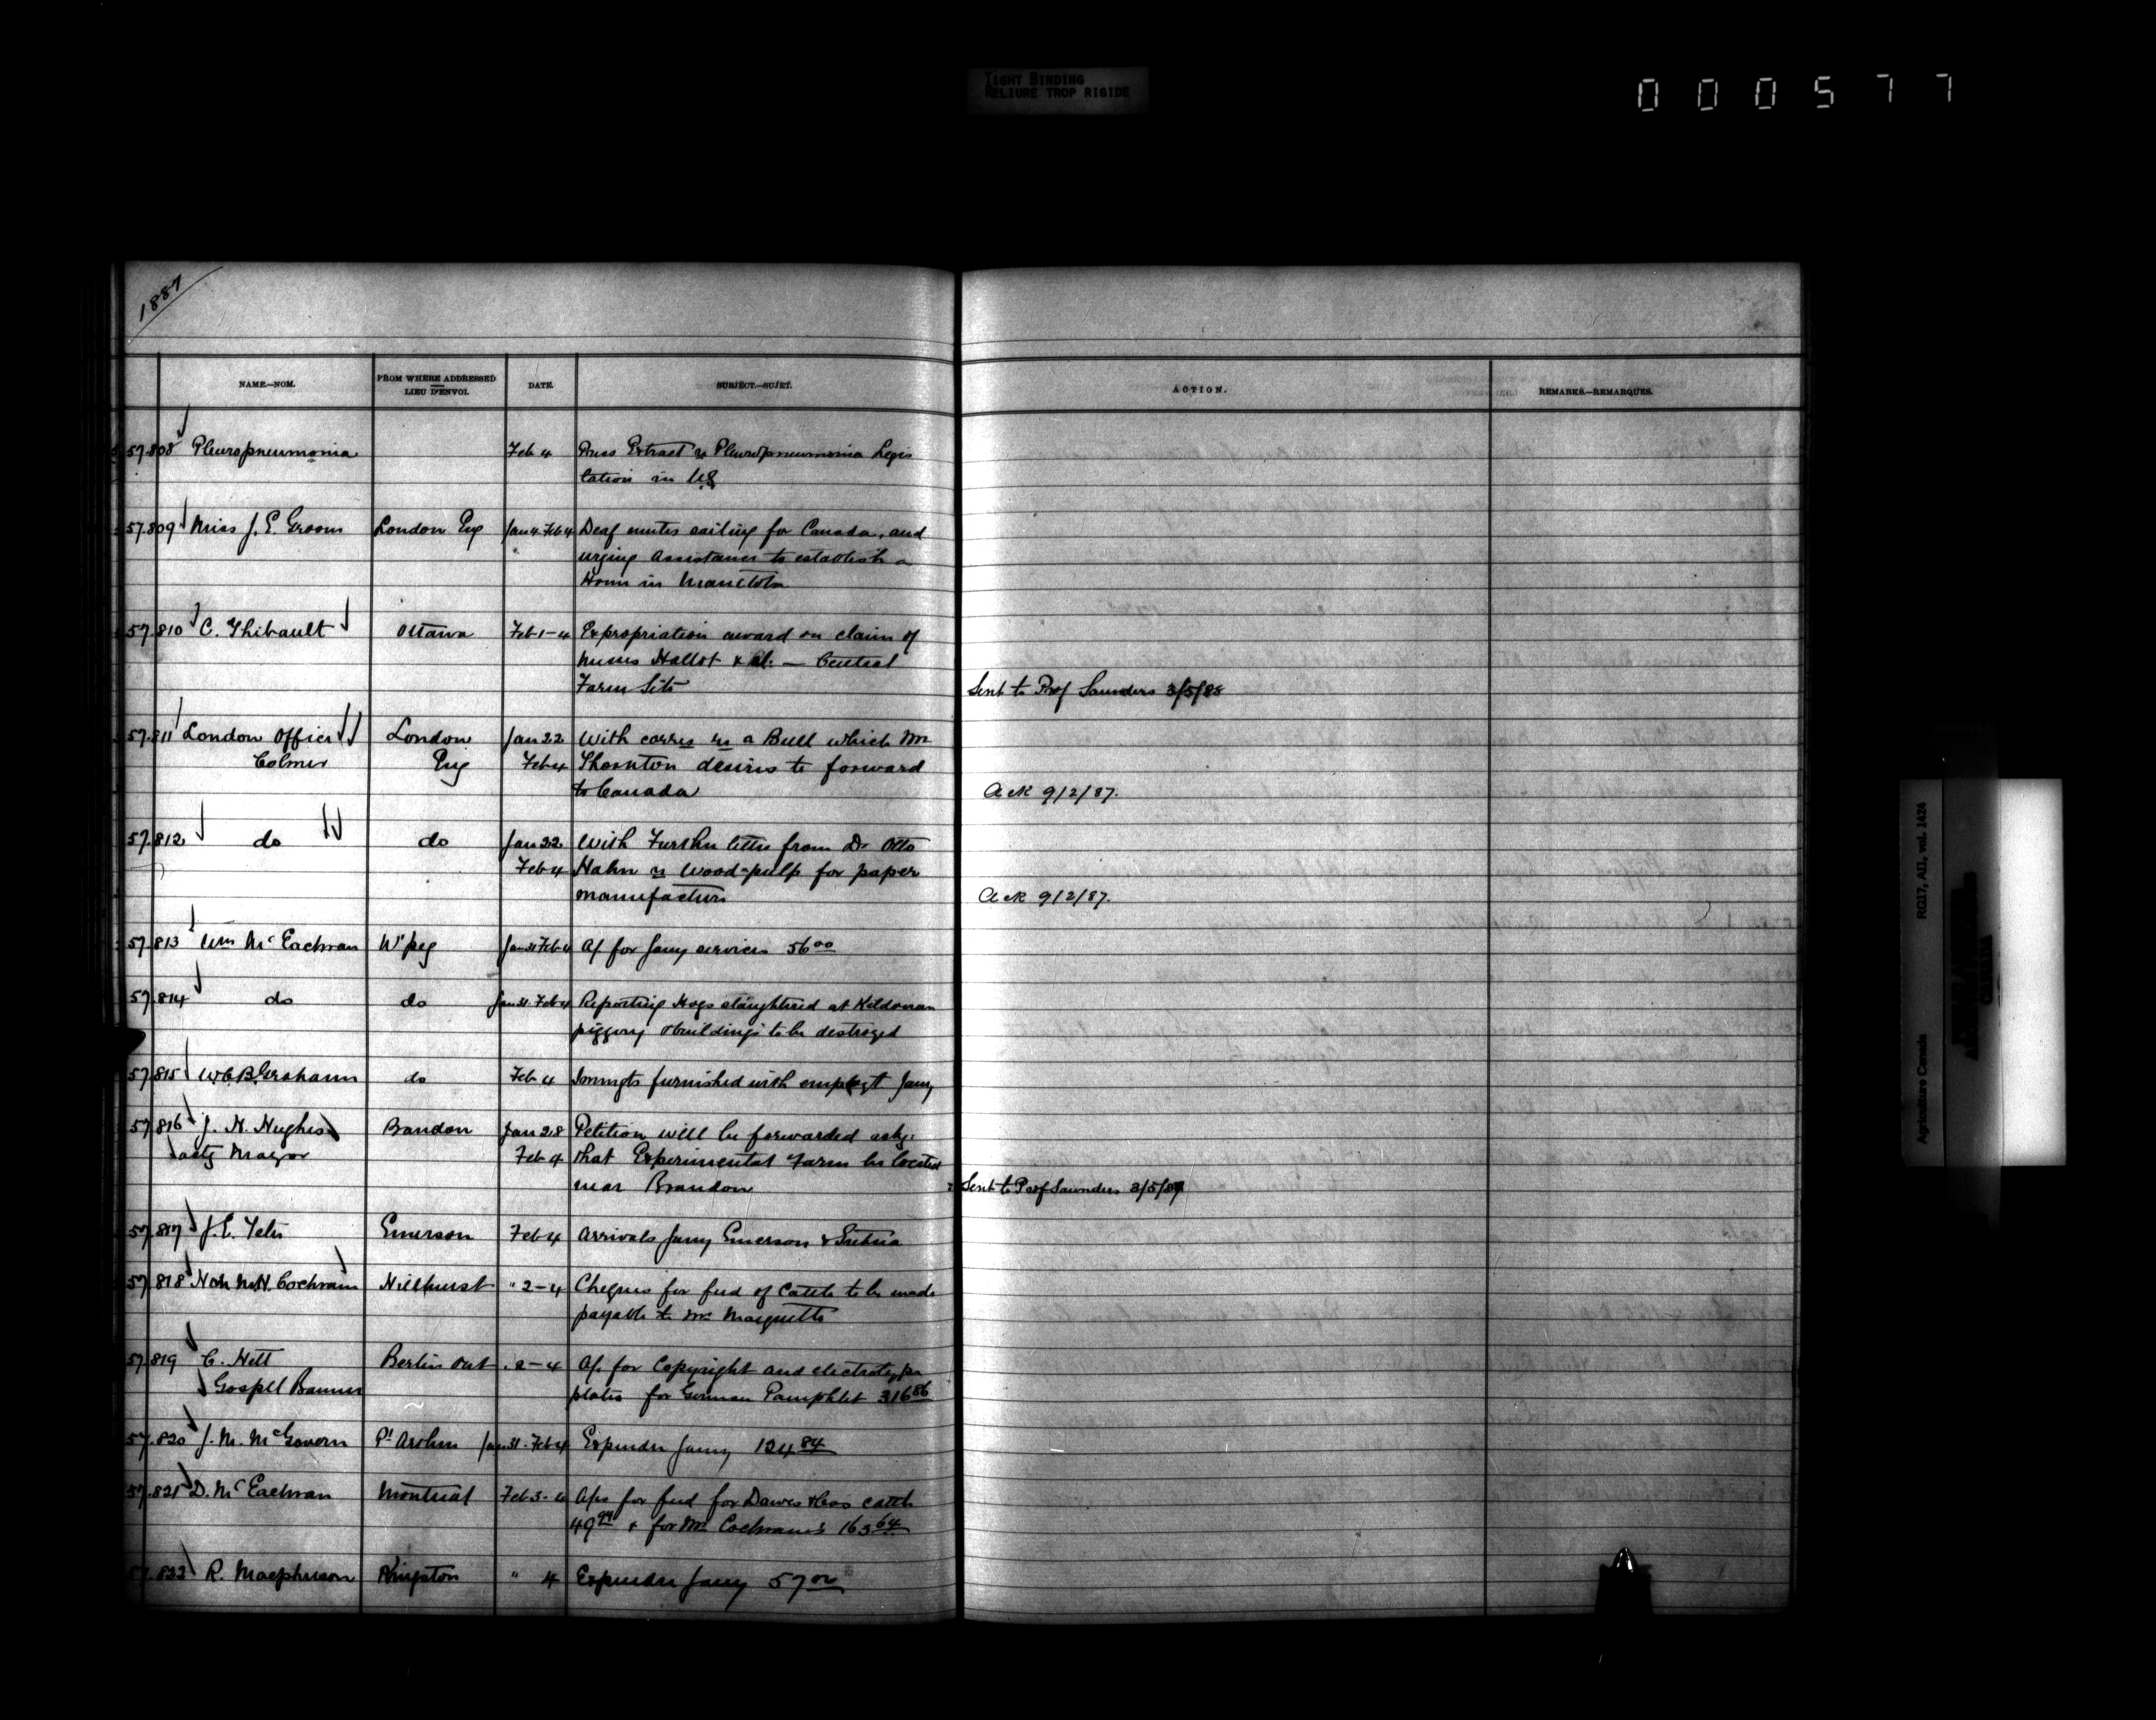 TIGHT BINDING
RELIURE TROP RIGIDE
000577
1887
NAME.—NOM.
FROM WHERE ADDRESSED
LIEU D'ENVOI.
DATE.
SUBJECT.—SUJET.
ACTION.
REMARKS.—REMARQUES.
57.808 Pleuropneumonia Feb 4 Press Extract re Pleuropneumonia Legis
lation in US
57.809 Miss J. E. Groom London Eng Jan 4 Feb 4 Deaf mutes sailing for Canada, and
urging assistance to establish a
Home in Manitoba
57.810 C. Thibault Ottawa Feb 1-4 Expropriation award on claim of
Messrs Hallot & al. — Central
Farm Site Sent to Prof Saunders 3/5/88
57.811 London Office London Jan 22 With corres re a Bull which Mr
Colmer Eng Feb 4 Thornton desires to forward
to Canada Ack 9/2/87.
57.812 do do Jan 22 With Further letter from Dr Otto
Feb 4 Hahn re Wood-pulp for paper
manufacture Ack 9/2/87.
57.813 Wm McEachran W'peg Jan 31 Feb 4 A/c for Jany services 56 00
57.814 do do Jan 31. Feb 4 Reporting Hogs slaughtered at Kildonan
piggery & buildings to be destroyed
57.815 W.C.B. Grahame do Feb 4 Immgts furnished with employt Jany
57.816 J. N. Hughes Brandon Jan 28 Petition will be forwarded askg.
actg Mayor Feb 4 that Experimental Farm be located
near Brandon Sent to Prof Saunders 3/5/88
57.817 J. E. Tetu Emerson Feb 4 Arrivals Jany Emerson & Gretna
57.818 Hon M.H. Cochrane Hillhurst " 2-4 Cheques for feed of Cattle to be made
payable to Mr Marquette
57.819 C. Hett Berlin Ont " 2-4 A/c for Copyright and electrotype
Gospel Banner plates for German Pamphlet 316 86
57.820 J. M. McGovern Pt Arthur Jan 31. Feb 4 Expendre Jany 124 84
57.821 D. McEachran Montreal Feb 3-4 A/cs for feed for Dawes &cos cattle
49 94 & for Mr Cochrane's 163 64
57.822 R. Macpherson Kingston " 4 Expendre Jany 57 00
Agriculture Canada
RG17, AII, vol. 1424
PUBLIC ARCHIVES
ARCHIVES PUBLIQUES
CANADA